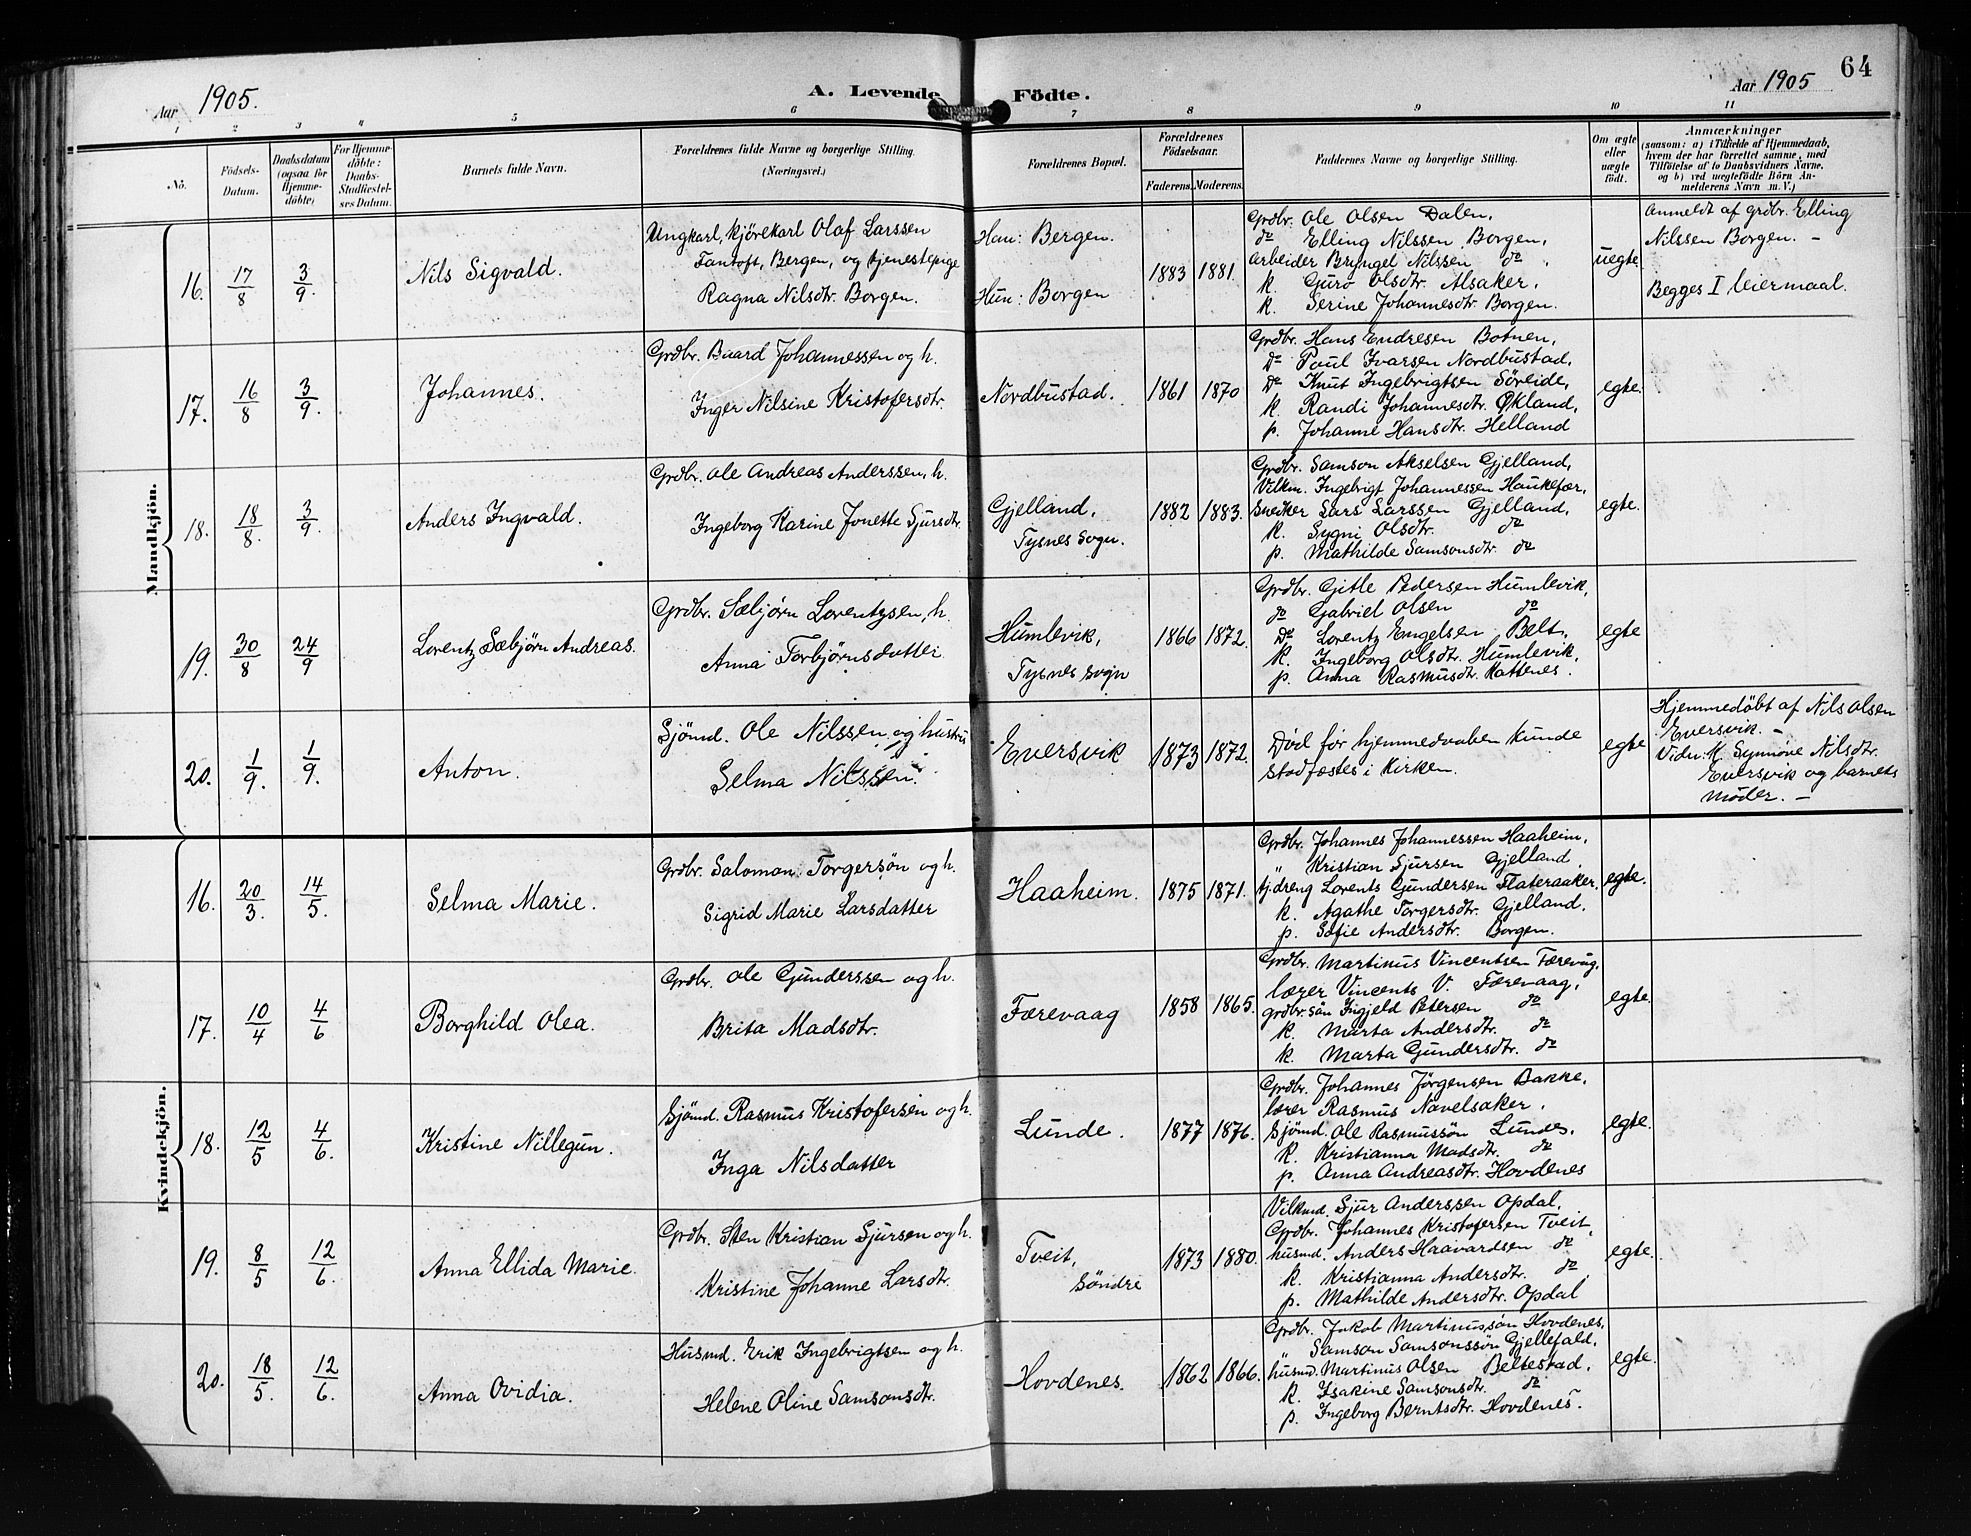 Aar 1905.
A. Levende Födte.
Aar 1905
64
1 2 3 4 5 6 7 8 9 10 11
No.
Födsels-Datum.
Daabsdatum (ogsaa for Hjemmedöbte)
For Hjemmedöbte: Daabs-Stadfæstelses Datum.
Barnets fulde Navn.
Forældrenes fulde Navne og borgerlige Stilling. (Næringsvei.)
Forældrenes Bopæl.
Forældrenes Födselsaar.
Faderens. Moderens.
Faddernes Navne og borgerlige Stilling.
Om ægte eller uægte födt.
Anmærkninger
(saasom: a) i Tilfælde af Hjemmedaab,
hvem der har forrettet samme, med
Tilföielse af to Daabsvidners Navne.
og b) ved uægtefödte Börn An-
melderens Navn m. V.)
Mandkjön.
16. 17/8 3/9. Nils Sigvald.
Ungkarl, kjörekarl Olaf Larssen
Fantoft, Bergen, og tjenestepige
Ragna Nilsdtr. Borgen.
Han: Bergen.
Hun: Borgen
1883 1881.
Grdbr. Ole Olsen Dalen.
do Elling Nilssen Borgen,
Arbeider Bryngel Nilssen do.
k. Guro Olsdtr. Alsaker.
k. Serine Johannesdtr. Borgen.
uegte.
Anmeldt af grdbr. Elling
Nilssen Borgen. –
Begges I leiermaal.
17. 16/8 3/9. Johannes.
Grdbr. Baard Johannessen og h.
Inger Nilsine Kristofersdtr.
Nordbustad.
1861 1870
Grdbr. Hans Endresen Botnen,
Do Paul Ivarsen Nordbustad.
Do Knut Ingebrigtsen Söreide,
k. Randi Johannesdtr. Økland,
p. Johanne Hansdtr. Helland
egte.
18. 18/8. 3/9. Anders Ingvald.
Grdbr. Ole Andreas Anderssen, h.
Ingeborg Karine Jonette Sjursdtr.
Gjelland,
Tysnes Sogn.
1882 1883.
Grdbr. Samson Akselsen Gjelland,
Vilkm. Ingebrigt Johannessen Haukefær,
Snedker Lars Larssen Gjelland,
k. Sygni Olsdtr. do
p. Mathilde Samsonsdtr. do
egte.
19. 30/8 24/9 Lorentz Sæbjörn Andreas.
Grdbr. Sæbjörn Lorentzsen, h.
Anna Torbjörnsdatter
Humlevik,
Tysnes sogn
1866 1872.
Grdbr. Gitle Pedersen Humlevik,
do Gabriel Olsen do
Do Lorentz Engelsen Belt,
k. Ingeborg Olsdtr. Humlevik,
p. Anna Rasmusdtr. Kattenes.
egte
20. 1/9. 1/9. Anton.
Sjömd. Ole Nilssen og hustru
Selma Nilssen.
Eversvik
1873 1872.
Död för hjemmedaaben kunde
stadfæstes i Kirken.
egte
Hjemmedöbt af Nils Olsen
Eversvik. –
Vidn: K. Synnöve Nilsdtr.
Eversvik og barnets
Moder. –
Kvindekjön.
16. 20/3. 14/5. Selma Marie.
Grdbr. Saloman Torgersön og h.
Sigrid Marie Larsdatter
Haaheim.
1875 1871.
Grdbr. Johannes Johannessen Haaheim,
" Kristian Sjursen Gjelland,
tj.dreng Lorents Gundersen Flateraaker,
k. Agathe Torgersdtr. Gjelland,
p. Sofie Andersdtr. Borgen.
egte.
17. 10/4 4/6 Borghild Olea.
Grdbr. Ole Gunderssen og h.
Brita Madsdtr.
Færevaag
1858 1865.
Grdbr. Martinus Vincentsen Færevåg,
lærer Vincents V. Færevaag,
grdbr.sön Ingjeld Petersen do
k. Marta Andersdtr. do
k. Marta Gundersdtr. do
egte.
18. 12/5 4/6. Kristine Nillegun.
Sjömd. Rasmus Kristofersen og h.
Inga Nilsdatter
Lunde.
1877 1876.
Grdbr. Johannes Jörgensen Bakke,
lærer Rasmus Navelsaker,
Sjömd. Ole Rasmussön Lunde,
k. Kristianna Madsdtr. do
p. Anna Andreasdtr. Hovdenes
egte.
19. 8/5 12/6. Anna Ellida Marie.
Grdbr. Sten Kristian Sjursen og h.
Kristine Johanne Larsdtr.
Tveit,
Söndre
1873 1880.
Vilkmd. Sjur Anderssen Opdal,
Grdbr. Johannes Kristofersen Tveit,
husmd. Anders Haavardsen do
k. Kristianna Andersdtr. do
p. Mathilde Andersdtr. Opdal
egte.
20. 18/5. 12/6. Anna Ovidia.
Husmd. Erik Ingebrigtsen og h.
Helene Oline Samsonsdtr.
Hovdenes.
1862 1866.
Grdbr. Jakob Martinussön Hovdenes,
Samson Samsonssön Gjellefald,
husmd. Martinus Olsen Beltestad,
k. Isakine Samsonsdtr. do
p. Ingeborg Berntsdtr. Hovdenes.
egte.